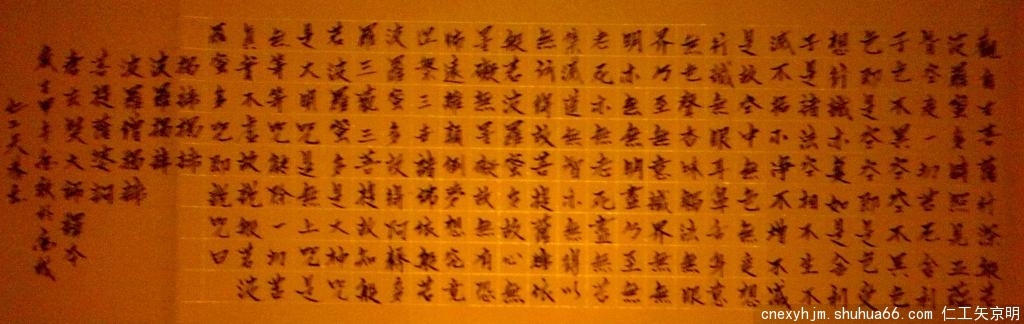 觀自在菩薩行深般若
波羅蜜多時照見五蘊
皆空度一切苦厄舍利
子色不異空空不異色
色即是空空即是色受
想行識亦復如是舍利
子是諸法空相不生不
滅不垢不淨不增不減
是故空中無色無受想
行識無眼耳鼻舌身意
無色聲香味觸法無眼
界乃至無意識界無無
明亦無無明盡乃至無
老死亦無老死盡無苦
集滅道無智亦無得以
無所得故菩提薩埵依
般若波羅蜜多故心無
罣礙無罣礙故無有恐
怖遠離顛倒夢想究竟
涅槃三世諸佛依般若
波羅蜜多故得阿耨多
羅三藐三菩提故知般
若波羅蜜多是大神咒
是大明咒是無上咒是
無等等咒能除一切苦
真實不虛故說般若波
羅蜜多咒即說咒曰
揭諦揭諦
波羅揭諦
波羅僧揭諦
菩提薩婆訶
玄奘大師譯
cnexyhjm.shuhua66.com 仁工矢京明